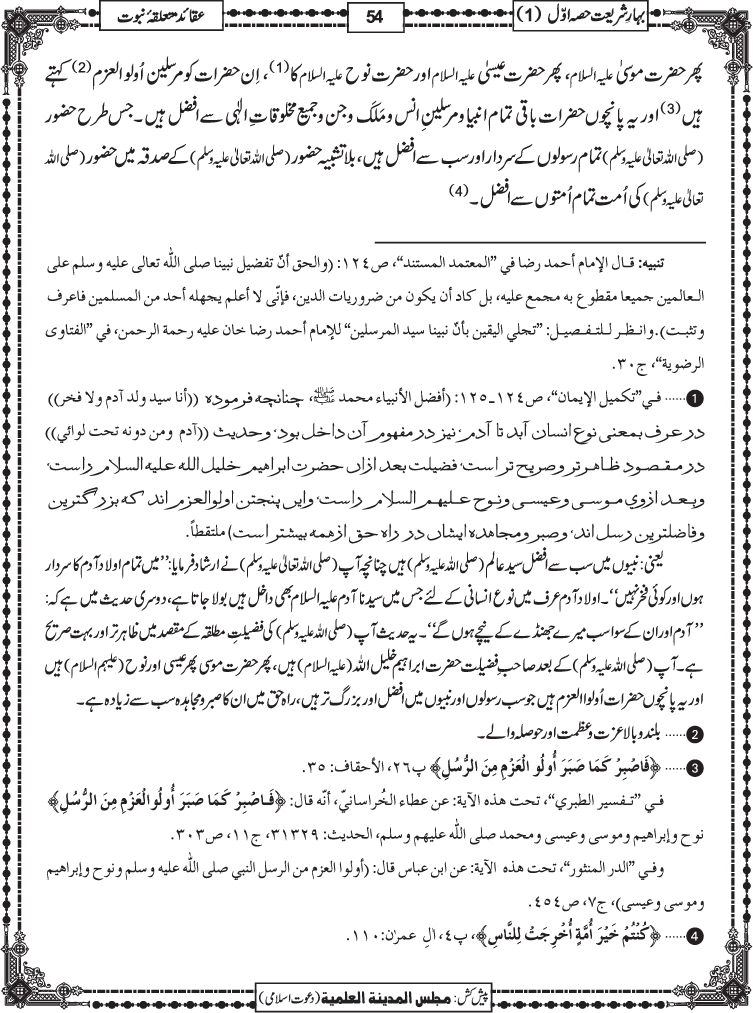 بہارِشریعت حصہ اوّل (1)
54
عقائد متعلقۂ نبوت
پھر حضرت موسیٰ علیہ السلام، پھر حضرت عیسیٰ علیہ السلام اور حضرت نوح علیہ السلام کا(1)، اِن حضرات کو مرسلین اُولو العزم (2) کہتے
ہیں (3) اور یہ پانچوں حضرات باقی تمام انبیا و مرسلینِ انس و مَلَک و جن و جمیع مخلوقاتِ الٰہی سے افضل ہیں۔ جس طرح حضور
(صلی اللہ تعالیٰ علیہ وسلم) تمام رسولوں کے سردار اور سب سے افضل ہیں، بلا تشبیہ حضور (صلی اللہ تعالیٰ علیہ وسلم) کے صدقہ میں حضور (صلی اللہ
تعالیٰ علیہ وسلم) کی اُمت تمام اُمتوں سے افضل۔ (4)
تنبیه: قال الإمام أحمد رضا في ”المعتمد المستند“، ص١٢٤: (والحق أنّ تفضيل نبينا صلى اللّٰه تعالى عليه وسلم على
العالمين جميعا مقطوع به مجمع عليه، بل كاد أن يكون من ضروريات الدين، فإنّي لا أعلم يجهله أحد من المسلمين فاعرف
وتثبت). وانظر للتفصيل: ”تجلي اليقين بأنّ نبينا سيد المرسلين“ للإمام أحمد رضا خان عليه رحمة الرحمن، في ”الفتاوى
الرضوية“، ج٣٠.
1 ...... في”تكميل الإيمان“، ص١٢٤ـ١٢٥: (أفضل الأنبياء محمد ﷺ، چنانچه فرموده ((أنا سيد ولد آدم ولا فخر))
در عرف بمعنی نوع انسان آید تا آدم، نیز در مفهوم آن داخل بود، وحدیث ((آدم ومن دونه تحت لوائي))
در مقصود ظاهرتر وصریح تر است، فضیلت بعد ازاں حضرت ابراهیم خلیل الله علیه السلام راست،
وبعد ازوی موسی وعیسی ونوح علیهم السلام راست، وایں پنجتن اولوالعزم اند که بزرگترین
وفاضلترین رسل اند، وصبر ومجاهده ایشاں در راه حق ازهمه بیشتر است) ملتقطاً.
یعنی: نبیوں میں سب سے افضل سید عالم (صلی اللہ علیہ وسلم) ہیں چنانچہ آپ (صلی اللہ تعالیٰ علیہ وسلم) نے ارشاد فرمایا: ’’میں تمام اولادِ آدم کا سردار
ہوں اور کوئی فخر نہیں‘‘۔ اولادِ آدم عرف میں نوع انسانی کے لئے جس میں سیدنا آدم علیہ السلام بھی داخل ہیں بولا جاتا ہے، دوسری حدیث میں ہے کہ:
’’آدم اور ان کے سوا سب میرے جھنڈے کے نیچے ہوں گے‘‘۔ یہ حدیث آپ (صلی اللہ علیہ وسلم) کی فضیلتِ مطلقہ کے مقصد میں ظاہر تر اور بہت صریح
ہے۔ آپ (صلی اللہ علیہ وسلم) کے بعد صاحبِ فضیلت حضرت ابراہیم خلیل اللہ (علیہ السلام) ہیں، پھر حضرت موسی پھر عیسی اور نوح (علیہم السلام) ہیں
اور یہ پانچوں حضرات اُولوا العزم ہیں جو سب رسولوں اور نبیوں میں افضل اور بزرگ تر ہیں، راہ حق میں ان کا صبر و مجاہدہ سب سے زیادہ ہے۔
2 ...... بلند و بالا عزت و عظمت اور حوصلہ والے۔
3 ...... ﴿فَاصْبِرْ كَمَا صَبَرَ أُولُو الْعَزْمِ مِنَ الرُّسُلِ﴾ پ٢٦، الأحقاف: ٣٥.
في ”تفسير الطبري“، تحت هذه الآية: عن عطاء الخُراسانيّ، أنّه قال: ﴿فَاصْبِرْ كَمَا صَبَرَ أُولُو الْعَزْمِ مِنَ الرُّسُلِ﴾
نوح وإبراهيم وموسى وعيسى ومحمد صلى اللّٰه عليهم وسلم، الحديث: ٣١٣٢٩، ج١١، ص٣٠٣.
وفي ”الدر المنثور“، تحت هذه الآية: عن ابن عباس قال: (أولوا العزم من الرسل النبي صلى اللّٰه عليه وسلم ونوح وإبراهيم
وموسى وعيسى)، ج٧، ص٤٥٤.
4 ...... ﴿كُنْتُمْ خَيْرَ أُمَّةٍ أُخْرِجَتْ لِلنَّاسِ﴾، پ٤، اٰلِ عمرٰن: ١١٠.
پیش کش: مجلس المدینة العلمیة (دعوتِ اسلامی)